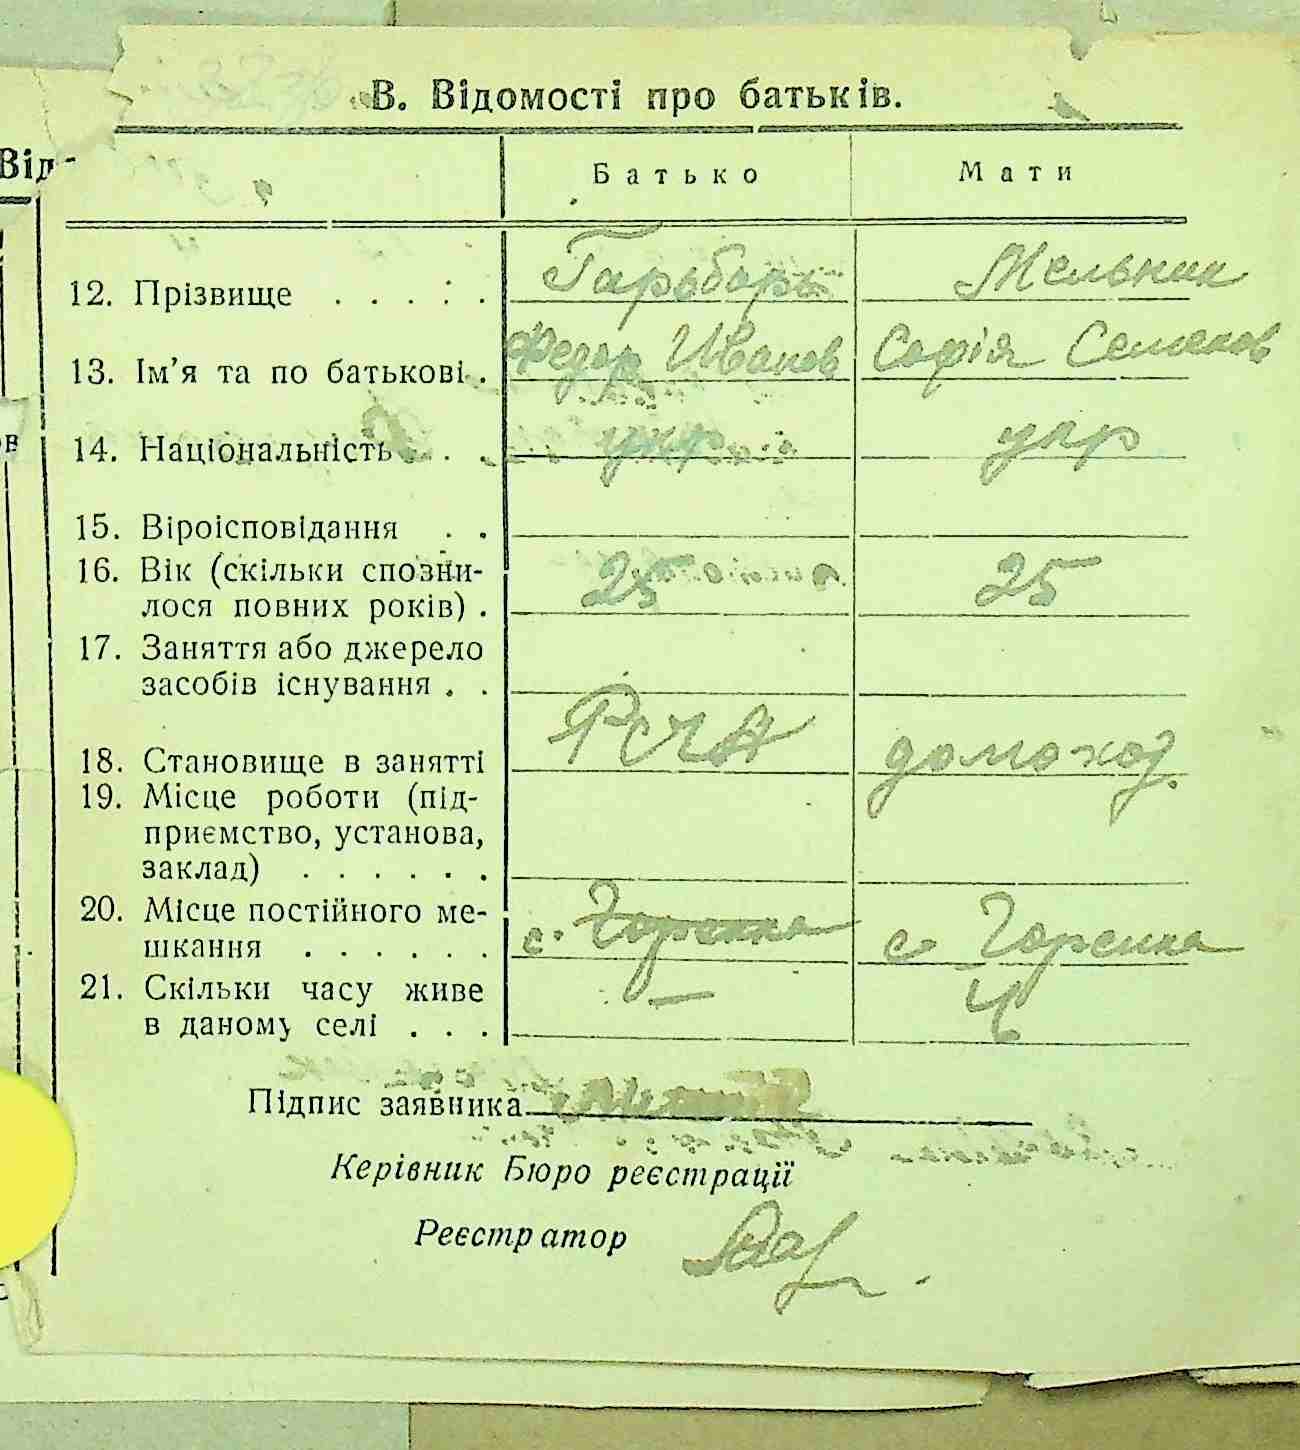 В. Відомості про батьків.
Від-
Батько Мати
12. Прізвище . . . . . Гарьбарь Мельник
13. Ім’я та по батькові . Федор Иванов Софія Семенов
14. Національність . . . укр укр
15. Віроісповідання . .
16. Вік (скільки спозни-
лося повних років) . 25 25
17. Заняття або джерело
засобів існування . .
18. Становище в занятті РСЧА домохоз.
19. Місце роботи (під-
приємство, установа,
заклад) . . . . . .
20. Місце постійного ме-
шкання . . . . . . с. Горенка с. Горенка
21. Скільки часу живе —
в даному селі . . .
Підпис заявника
Керівник Бюро реєстрації
Реєстратор